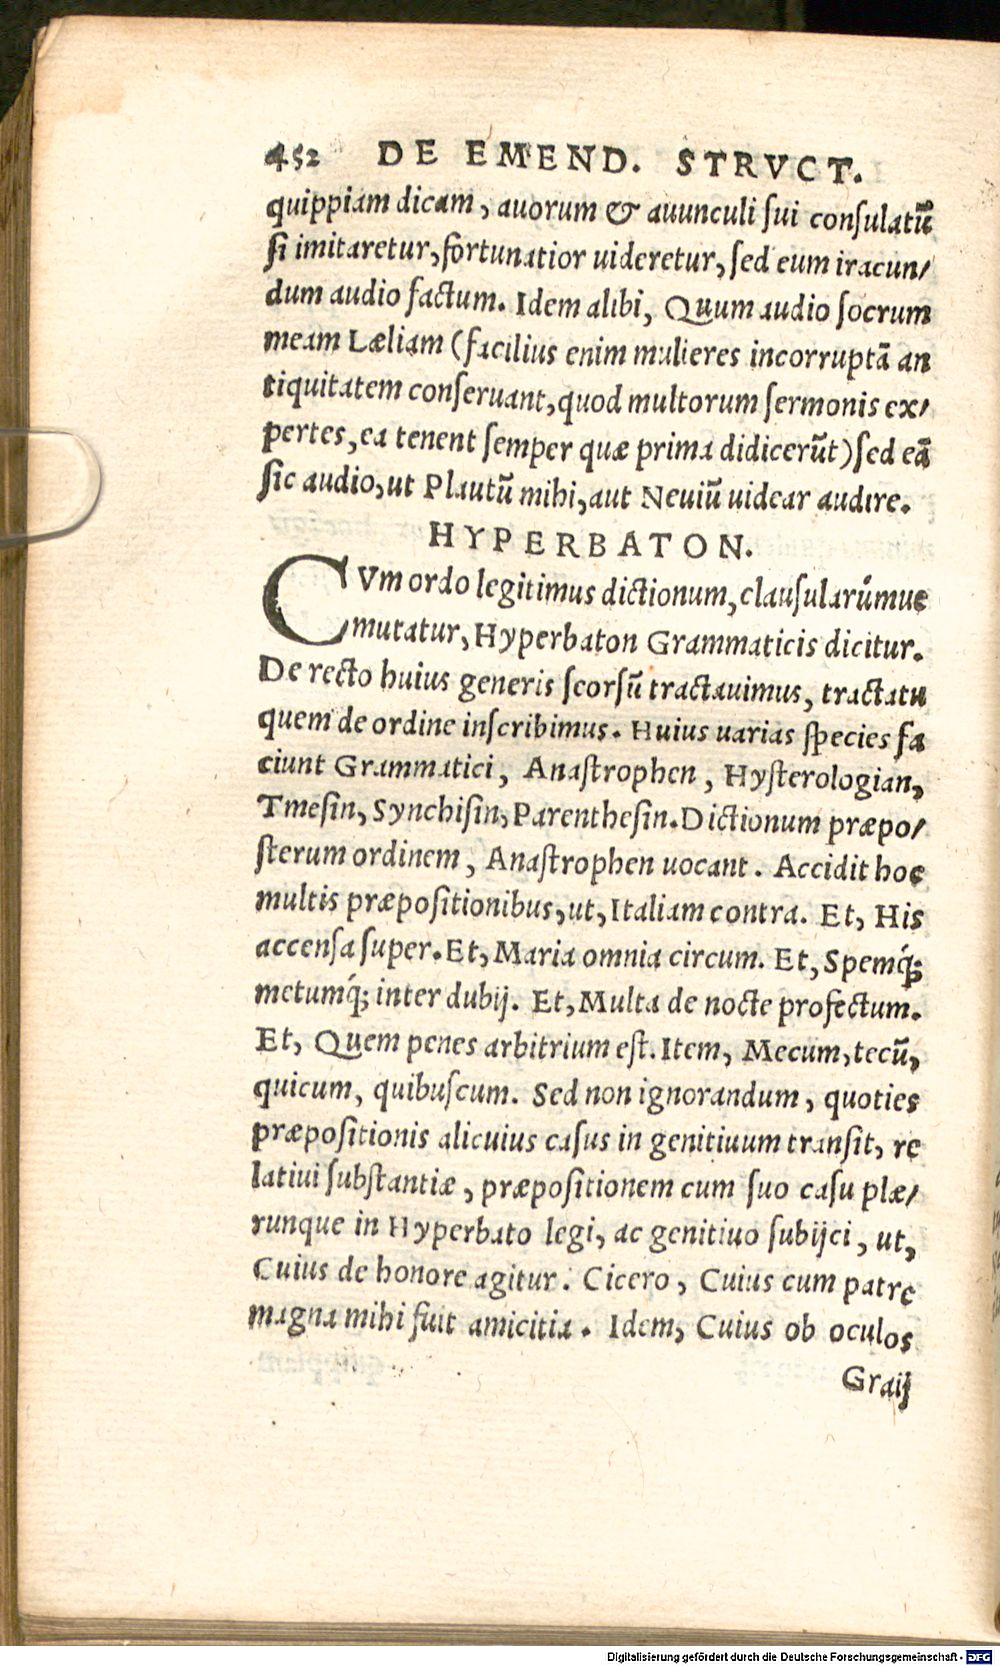 452 DE EMEND. STRVCT.
quippiam dicam, auorum & auunculi sui consulatū
si imitaretur, fortunatior uideretur, sed eum iracun/
dum audio factum. Idem alibi, Quum audio socrum
meam Læliam (facilius enim mulieres incorruptā an
tiquitatem conseruant, quod multorum sermonis ex/
pertes, ea tenent semper quæ prima didicerūt) sed eā
sic audio, ut Plautū mihi, aut Neuiū uidear audire.
HYPERBATON.
CVm ordo legitimus dictionum, clausularúmue
mutatur, Hyperbaton Grammaticis dicitur.
De recto huius generis scorsū tractauimus, tractatu
quem de ordine inscribimus. Huius uarias species fa
ciunt Grammatici, Anastrophen, Hysterologian,
Tmesin, Synchisin, Parenthesin. Dictionum præpo/
sterum ordinem, Anastrophen uocant. Accidit hoc
multis præpositionibus, ut, Italiam contra. Et, His
accensa super. Et, Maria omnia circum. Et, Spemq́;
metumq́; inter dubij. Et, Multa de nocte profectum.
Et, Quem penes arbitrium est. Item, Mecum, tecū,
quicum, quibuscum. Sed non ignorandum, quoties
præpositionis alicuius casus in genitiuum transit, re
latiui substantiæ, præpositionem cum suo casu plæ/
runque in Hyperbato legi, ac genitiuo subijci, ut,
Cuius de honore agitur. Cicero, Cuius cum patre
magna mihi fuit amicitia. Idem, Cuius ob oculos
Graij
Digitalisierung gefördert durch die Deutsche Forschungsgemeinschaft - DFG